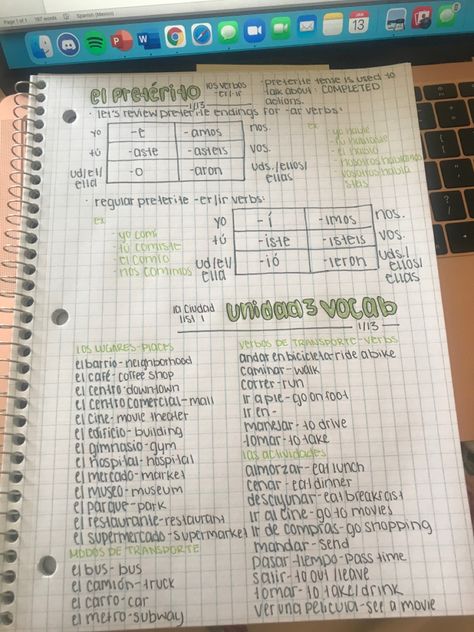 Page 1 of 1
197 words
Spanish (Mexico)
JAN
13
el pretérito
los verbos
-er/-ir
1/13
preterite tense is used to
talk about: COMPLETED
actions.
· let's review preterite endings for -ar verbs:
yo
-é
-amos
nos.
tú
-aste
-asteis
vos.
ud/el/
ella
-ó
-aron
uds./ellos/
ellas
ex
- yo hablé
- tú hablaste
- el habló
- nosotros hablamos
· regular preterite -er/ir verbs:
ex
- yo comí
- tú comiste
- el comió
- nos comimos
yo
-í
-imos
nos.
tú
-iste
-isteis
vos.
ud/el/
ella
-ió
-ieron
uds./
ellos/
ellas
la ciudad
list 1
unidad 3 vocab
1/13
los lugares - places
el barrio - neighborhood
el café - coffee shop
el centro - downtown
el centro comercial - mall
el cine - movie theater
el edificio - building
el gimnasio - gym
el hospital - hospital
el mercado - market
el museo - museum
el parque - park
el restaurante - restaurant
el supermercado - supermarket
modos de transporte
el bus - bus
el camión - truck
el carro - car
el metro - subway
verbos de transporte - verbs
andar en bicicleta - ride a bike
caminar - walk
correr - run
ir a pie - go on foot
ir en -
manejar - to drive
tomar - to take
las actividades
almorzar - eat lunch
cenar - eat dinner
desayunar - eat breakfast
ir al cine - go to movies
ir de compras - go shopping
mandar - send
pasar tiempo - pass time
salir - to out/leave
tomar - to take/drink
ver una película - see a movie